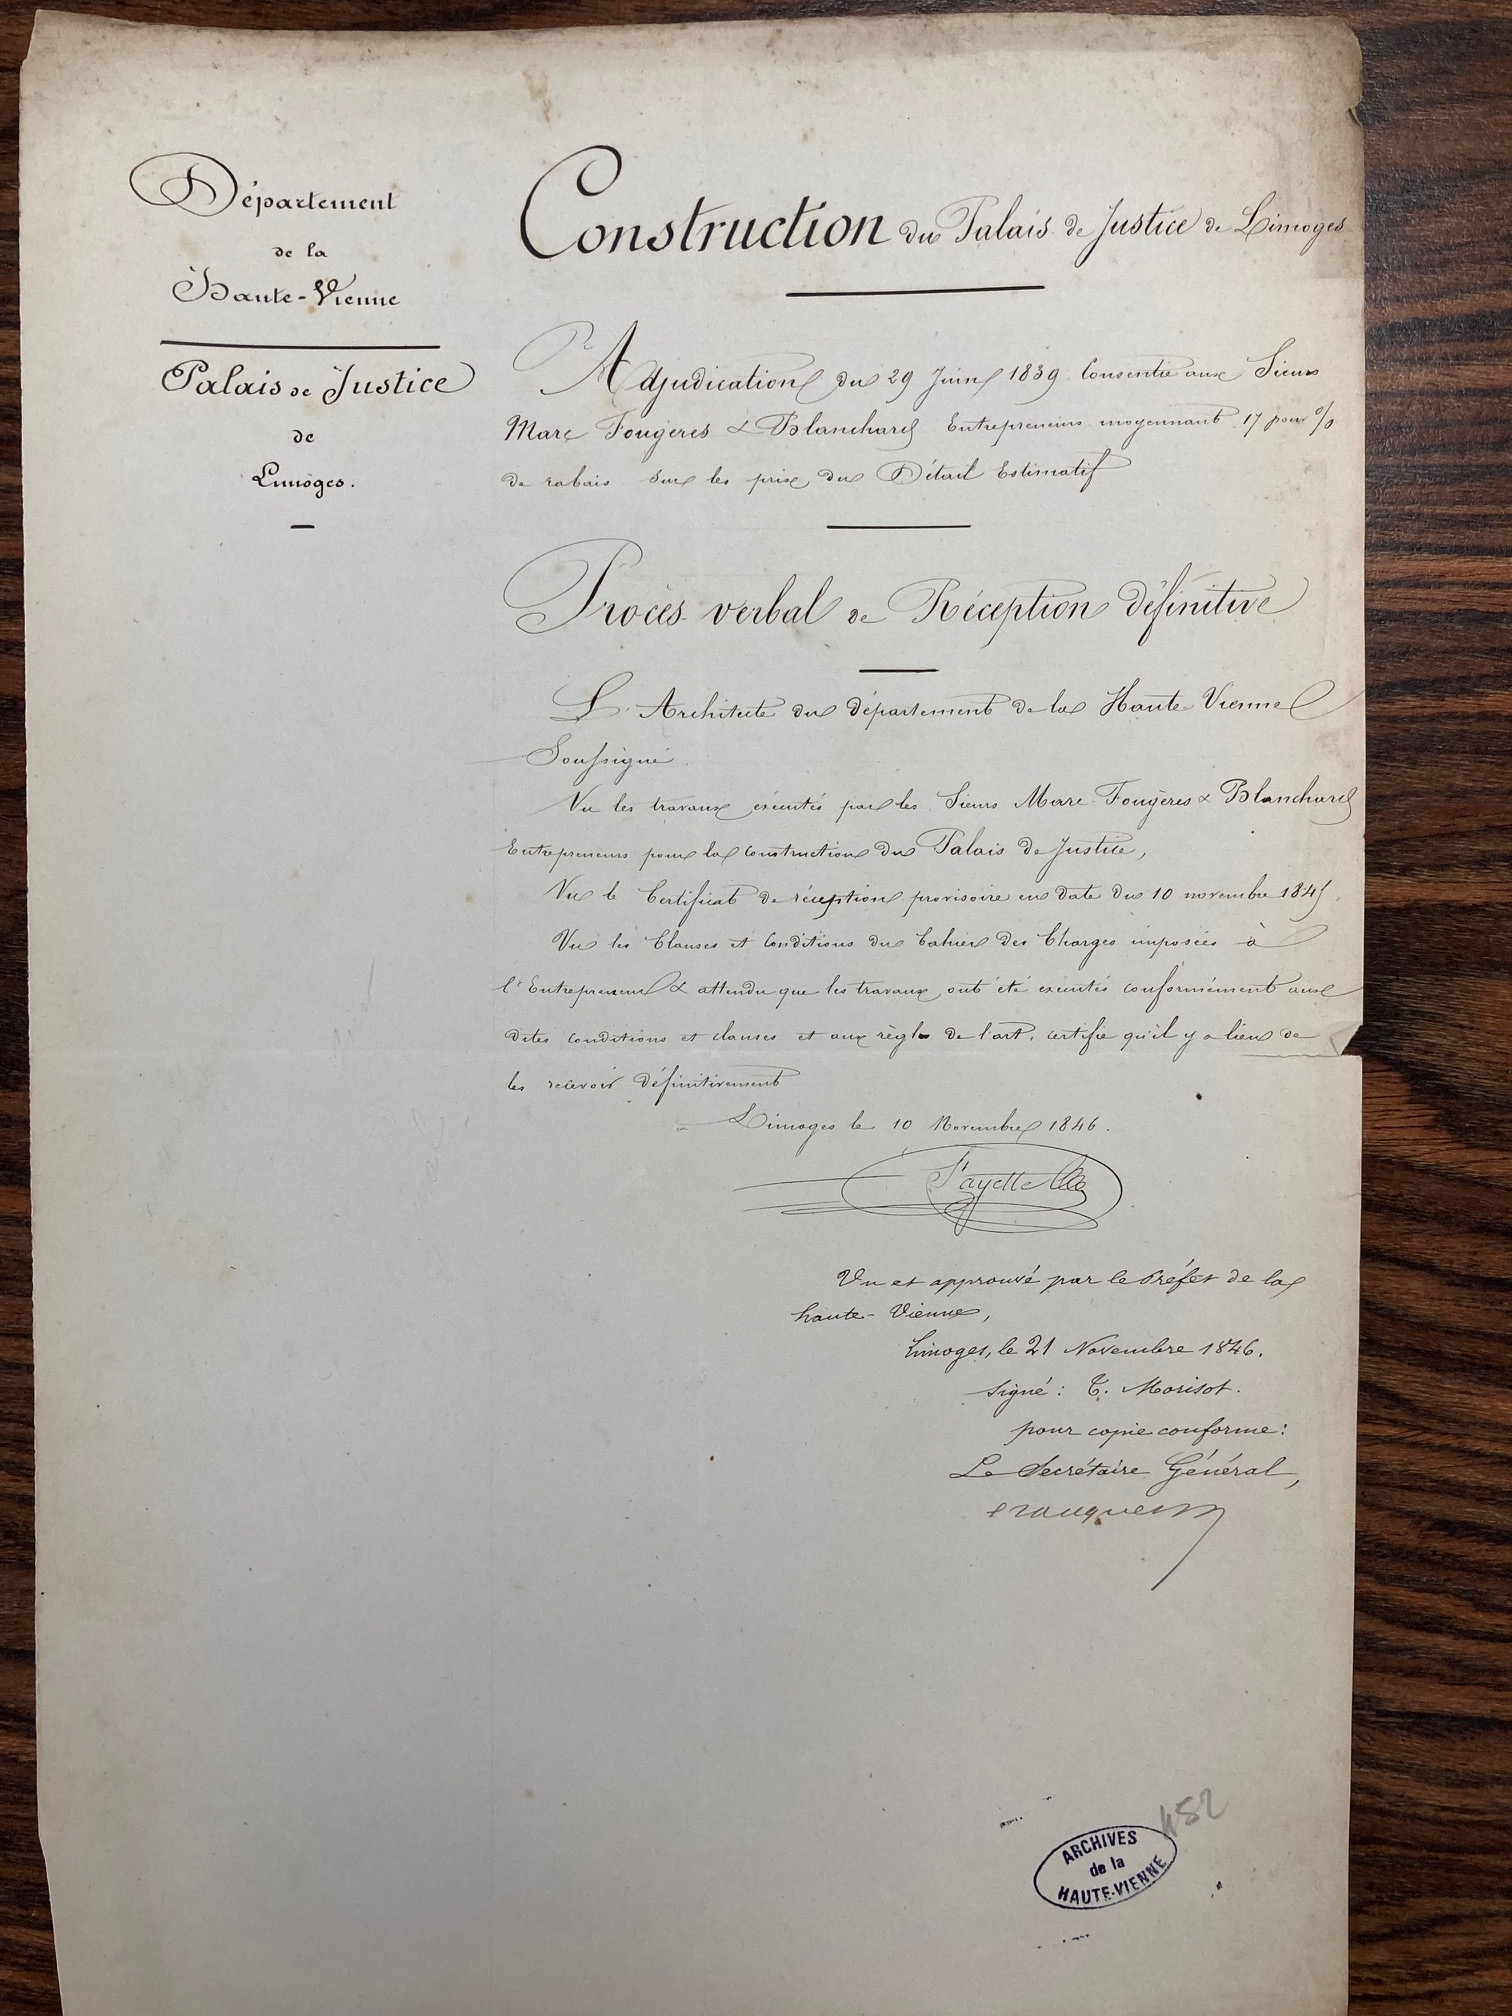 Département
de la
Haute-Vienne
Palais de Justice
de
Limoges.
Construction du Palais de Justice de Limoges
Adjudication du 29 Juin 1839 Consentie aux Sieurs
Marc Fougeres & Blanchard Entrepreneurs moyennant 17 pour %
de rabais sur les prix du Détail Estimatif
Procès verbal de Réception définitive
L'Architecte du département de la Haute-Vienne
Soussigné
Vu les travaux exécutés par les Sieurs Marc Fougères & Blanchard
Entrepreneurs pour la construction du Palais de Justice,
Vu le Certificat de réception provisoire en date du 10 novembre 1845
Vu les Clauses et Conditions du Cahier des Charges imposées à
l'Entrepreneur & attendu que les travaux ont été exécutés conformément aux
dites conditions et clauses et aux règles de l'art, certifie qu'il y a lieu de
les recevoir définitivement
Limoges le 10 Novembre 1846.
Vu et approuvé par le Préfet de la
haute-Vienne,
Limoges, le 21 Novembre 1846.
signé : T. Morisot.
pour copie conforme :
Le Secrétaire Général,
452
ARCHIVES
de la
HAUTE-VIENNE